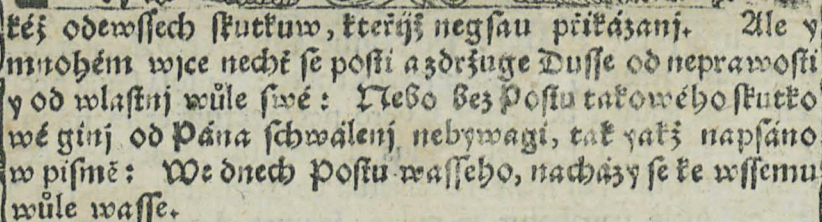 kéž odewssech skutkuw, kteřijž negsau přikázanj. Ale y
mnohém wjce nechť se posti a zdržuge Dusse od neprawosti
y od wlastnj wůle swé: Nebo bez Postu takowého skutko
wé ginj od Pána schwálenj nebywagi, tak yakž napsáno
w pismě: We dnech Postu wasseho, nacházý se ke wssemu
wůle wasse.